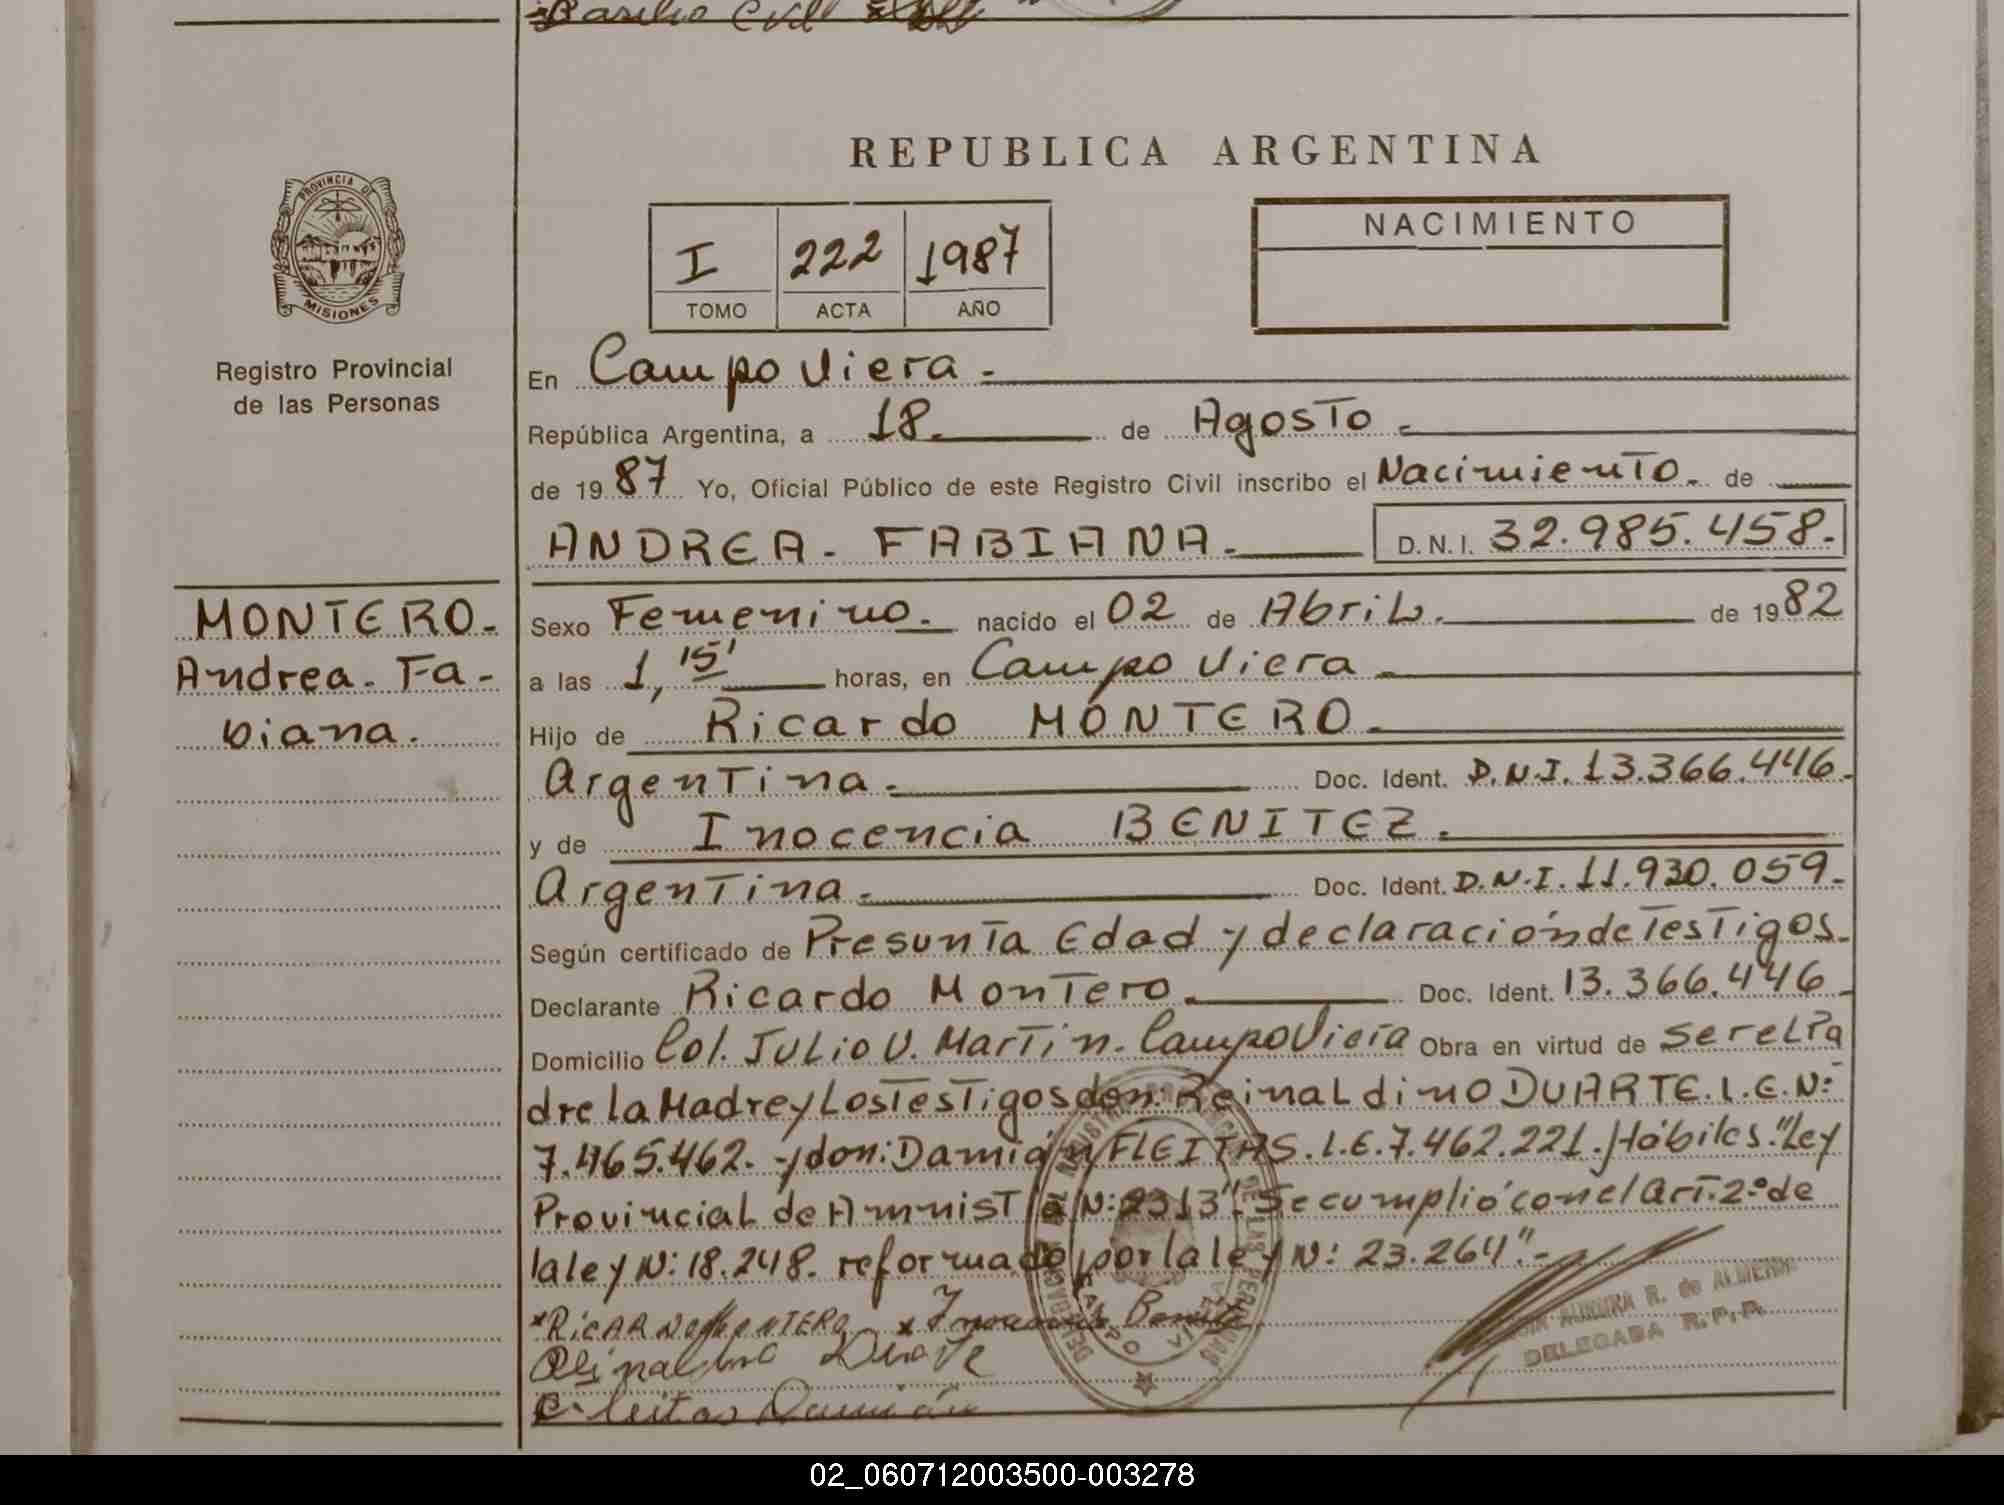 Basilio Civil
REPUBLICA ARGENTINA
PROVINCIA DE
MISIONES
I 222 1987
TOMO ACTA AÑO
NACIMIENTO
Registro Provincial
de las Personas
En Campo Viera.-
República Argentina, a 18. de Agosto.
de 1987 Yo, Oficial Público de este Registro Civil inscribo el Nacimiento. de
ANDREA. FABIANA. D.N.I. 32.985.458.
MONTERO.
Andrea. Fa-
biana.
Sexo Femenino. nacido el 02 de Abril. de 1982
a las 1,15' horas, en Campo Viera
Hijo de Ricardo MONTERO.
Argentina. Doc. Ident. D.N.I. 13.366.446.
y de Inocencia BENITEZ.
Argentina. Doc. Ident. D.N.I. 11.930.059.
Según certificado de Presunta Edad y declaración de Testigos.
Declarante Ricardo Montero. Doc. Ident. 13.366.446
Domicilio Col. Julio U. Martin. Campo Viera Obra en virtud de ser el Pa
dre la Madre y Los Testigos don: Reinaldino DUARTE. L.E.N:
7.465.462. y don: Damián FLEITAS. L.E. 7.462.221. Hábiles. "Ley
Provincial de Amnistía N: 2313". Se cumplió con el Art. 2º de
la ley N: 18.248. reformado por la ley N: 23.264".-
*RICARDO MONTERO * Inocencia Benitez
Reinaldino Duarte
Fleitas Damián
CAMPO VIERA
AURORA R. de ALMEIDA
DELEGADA R.P.P.
02_060712003500-003278